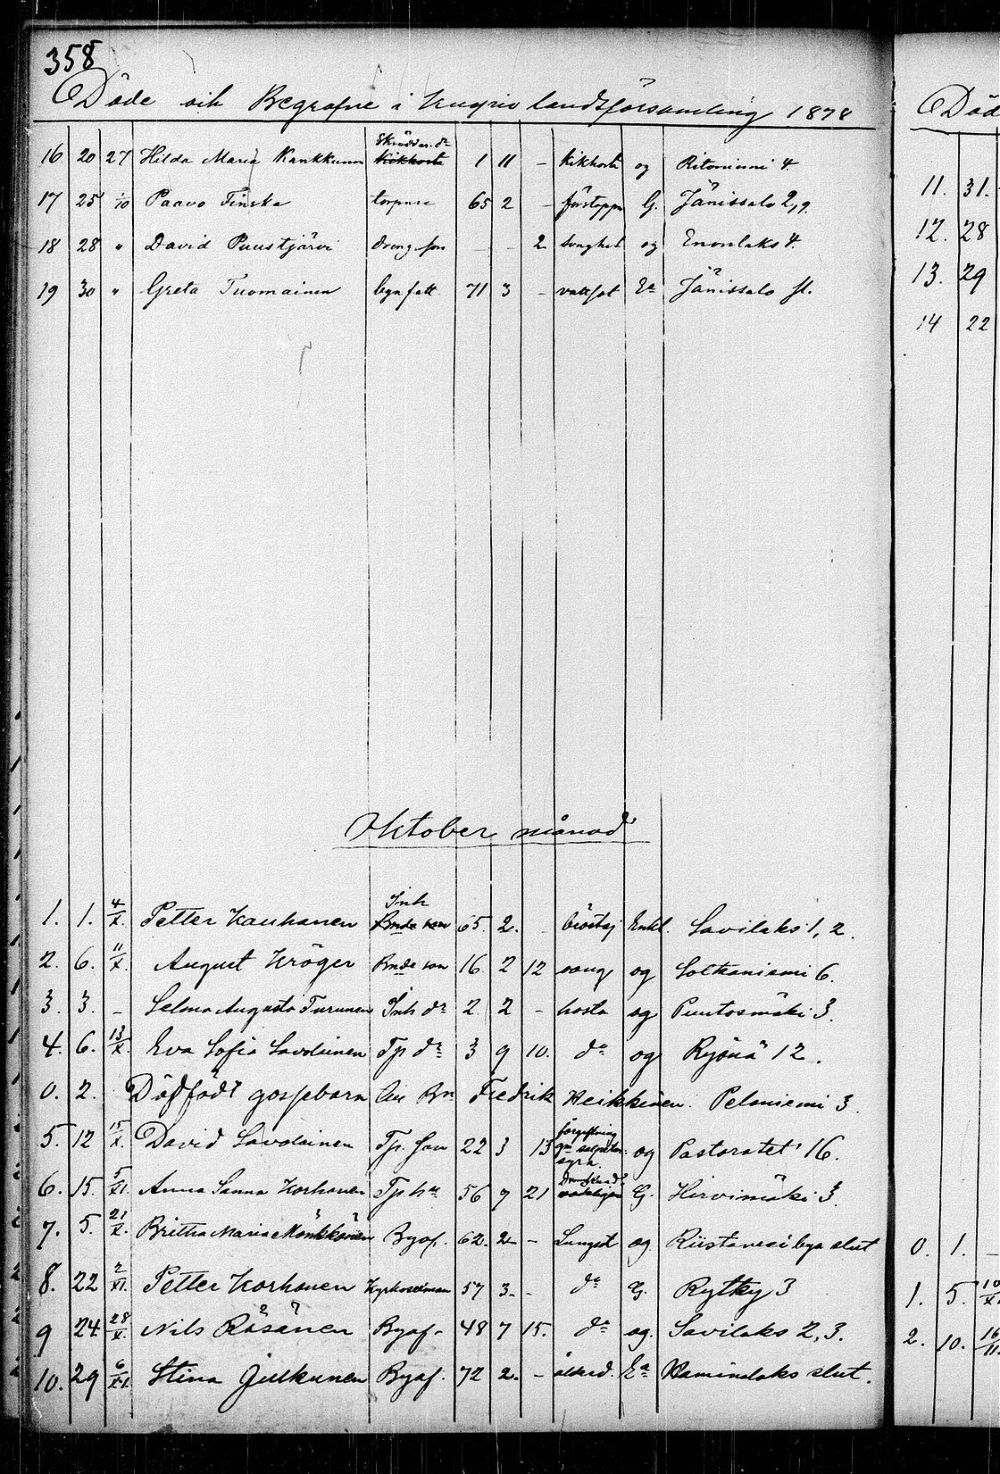 358
Döde och Begrafne i Kuopio landsförsamling 1878
16 20 27 Hilda Maria Kankkunen Skräddar. dr 1 11 - kikhosta og Ritoniemi 4.
17 25 1/10 Paavo Finska torpare 65 2 - förstoppn G. Jänissalo 2,9.
18 28 " David Puustjärvi dreng. son - - 2 og Enonlaks 4.
19 30 " Greta Tuomainen byafatt. 71 3 - vattsot Ea Jänissalo sl.
Oktober månad
1. 1. 4/X. Petter Kauhanen Inh 65. 2. - Enkl. Savilaks 1, 2.
2. 6. 11/X. August Kröger Bnde son 16. 2 12 og Sotkaniemi 6.
3. 3. - Selma Augusta Turunen Inh dr 2. 2 - hosta og Puutosmäki 3.
4. 6. 13/X. Eva Sofia Savolainen Tp dr 3 9 10. do og Ryönä 12.
0. 2. Dödfödt gossebarn Fredrik Heikkinen. Peloniemi 3.
5. 12 15/X. David Savolainen Tp. son 22 3 13 förgiftning syra. og Pastoratet 16.
6. 15. 5/XI. Anna Sanna Korhonen Tp hu 56 7 21 G. Hirvimäki 3.
7. 5. 21/X. Britha Maria Mönkkönen Byaf. 62. 2 - Lungst og Riistavesi bya slut
8. 22 2/XI. Petter Korhonen 57 3. - do G. Rytky 3
9 24 28/X. Nils Räsänen Byaf. 48 7 15. do og. Savilaks 2, 3.
10. 29 6/XI. Stina Julkunen Byaf. 72 2. - ålderd. Ea Vaminlaks slut.
Död
11. 31.
12. 28
13. 29
14 22
0. 1. -
1. 5. 10/X
2. 10. 16/11